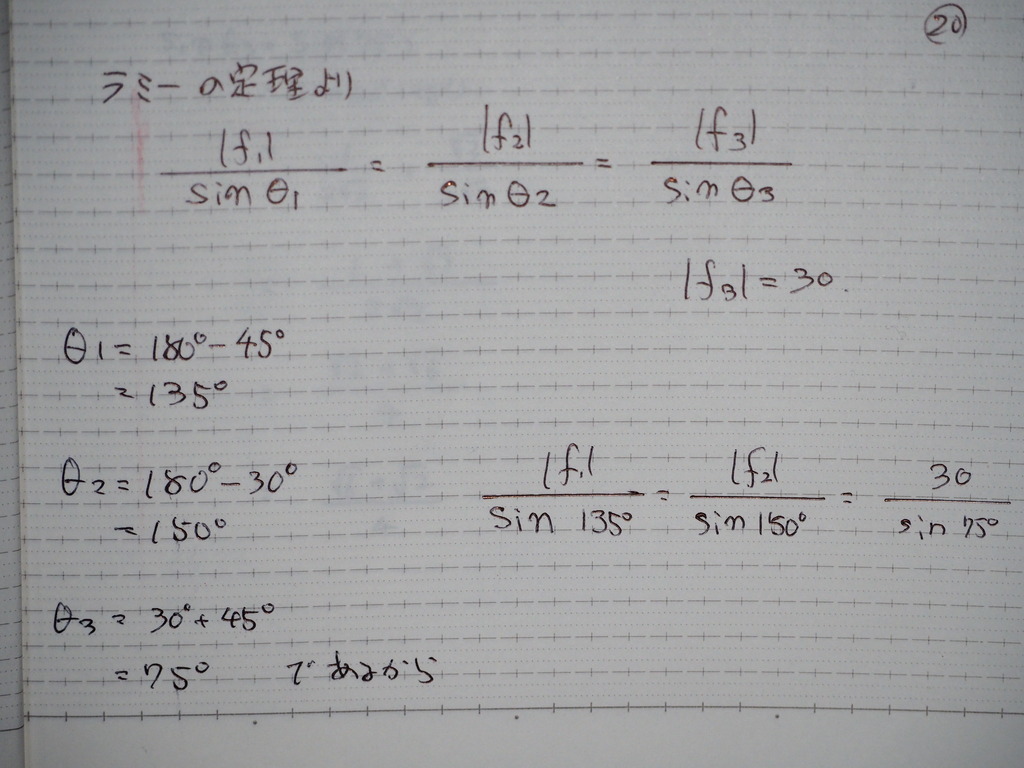 ⑳
ラミーの定理より
|f₁| / sin θ₁ = |f₂| / sin θ₂ = |f₃| / sin θ₃
|f₃| = 30.
θ₁ = 180° − 45°
= 135°
θ₂ = 180° − 30°
= 150°
|f₁| / sin 135° = |f₂| / sin 150° = 30 / sin 75°
θ₃ = 30° + 45°
= 75° であるから